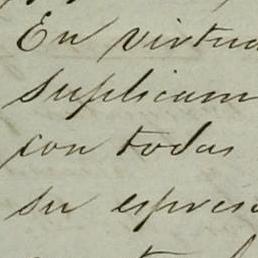 En virtud
Suplicam
con todas
su espresa